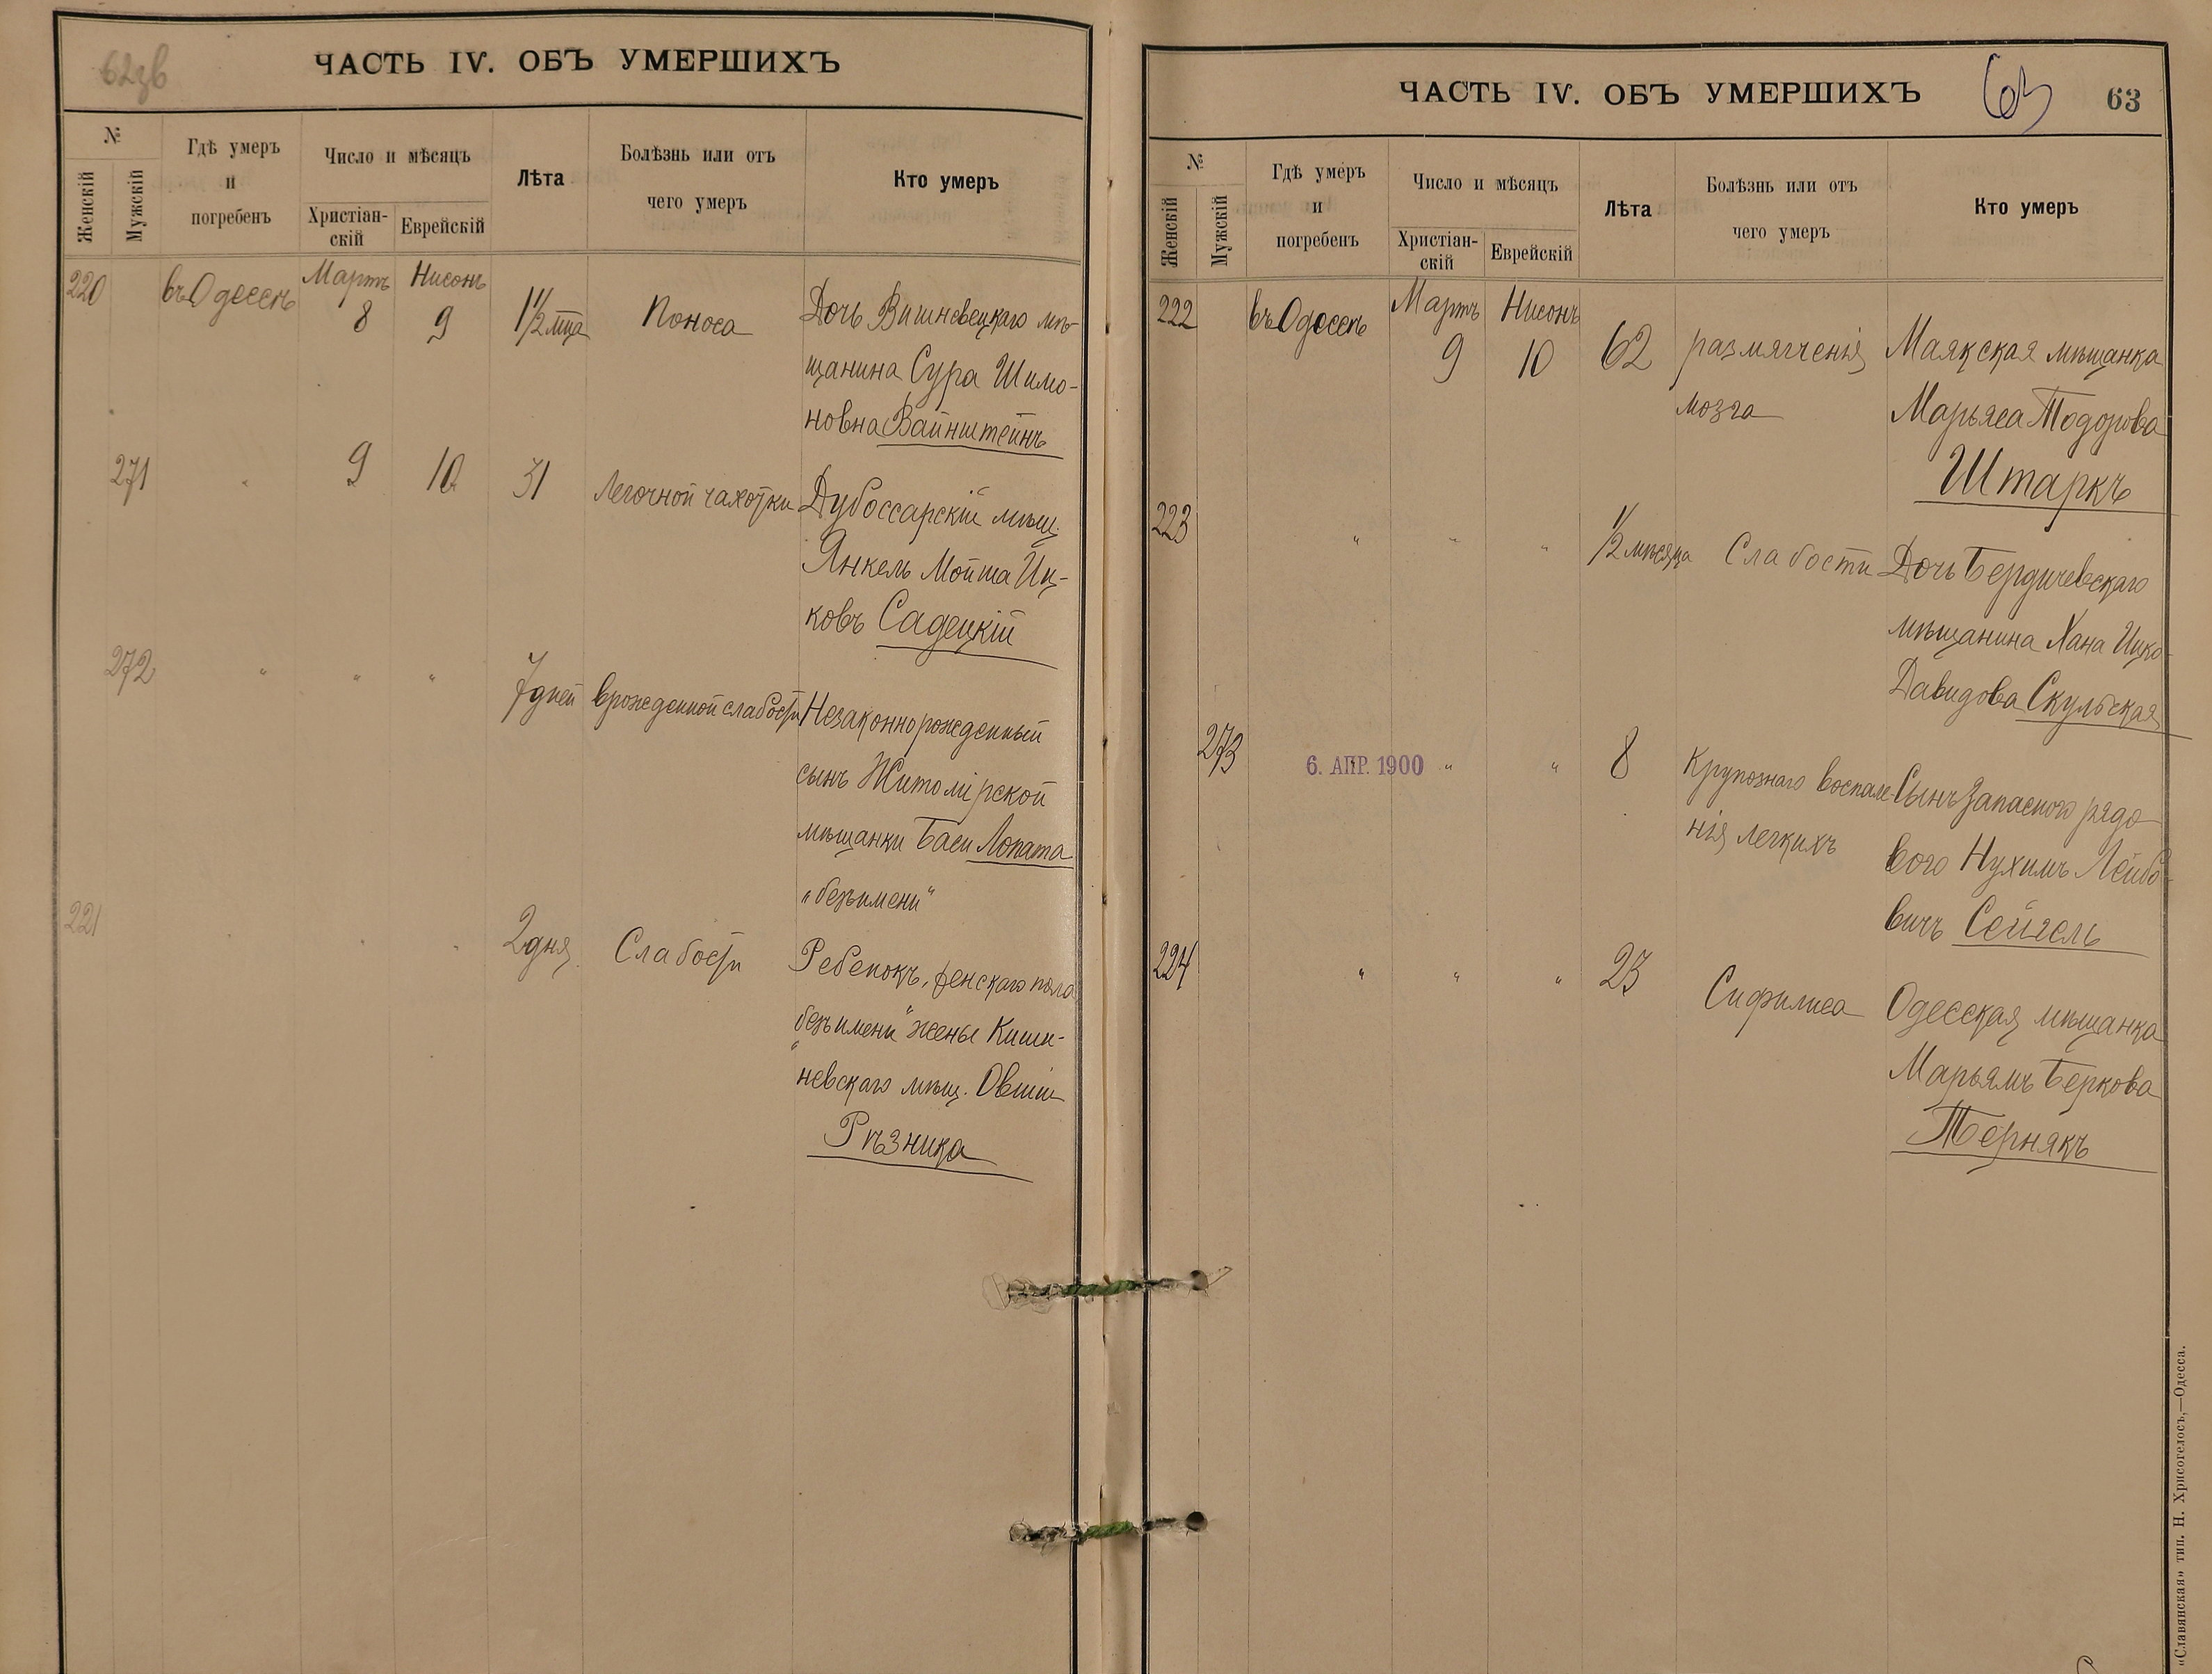 62зв
ЧАСТЬ IV. ОБЪ УМЕРШИХЪ
№
Женскій
Мужскій
Гдѣ умеръ
и
погребенъ
Число и мѣсяцъ
Христіан-
скій
Еврейскій
Лѣта
Болѣзнь или отъ
чего умеръ
Кто умеръ
220 въ Одессѣ Мартъ 8 Нисонъ 9 1 1/2 мца Поноса Дочь Вишневецкаго мѣ-
щанина Сура Шимо-
новна Вайнштейнъ
271 " 9 10 31 Легочной чахотки Дубоссарскій мѣщ.
Янкель Мойша Иц-
ковъ Садецкій
272 " " " 7 дней врожденной слабости Незаконнорожденный
сынъ Житомірской
мѣщанки Баси Лопата
"безъ имени"
221 " " " 2 дня Слабости Ребенокъ, женскаго пола
"безъ имени" жены Киши-
невскаго мѣщ. Овшіи
Рѣзника
ЧАСТЬ IV. ОБЪ УМЕРШИХЪ
63
63
№
Женскій
Мужскій
Гдѣ умеръ
и
погребенъ
Число и мѣсяцъ
Христіан-
скій
Еврейскій
Лѣта
Болѣзнь или отъ
чего умеръ
Кто умеръ
222 въ Одессѣ Мартъ 9 Нисонъ 10 62 размягченія Маякская мѣщанка
мозга Марьяса Тодорова
Штаркъ
223 " " " 1/2 мѣсяца Слабости Дочь Бердичевскаго
мѣщанина Хана Ицко-
Давидова Скульская
273 6. АПР. 1900 " " 8 Крупознаго воспале Сынъ запасного рядо-
нія легкихъ вого Нухимъ Лейбо-
вичъ Сейгель
224 " " " 23 Сифилиса Одесская мѣщанка
Марьямъ Беркова
Тернякъ
«Славянская» тип. Н. Хрисогелосъ,—Одесса.